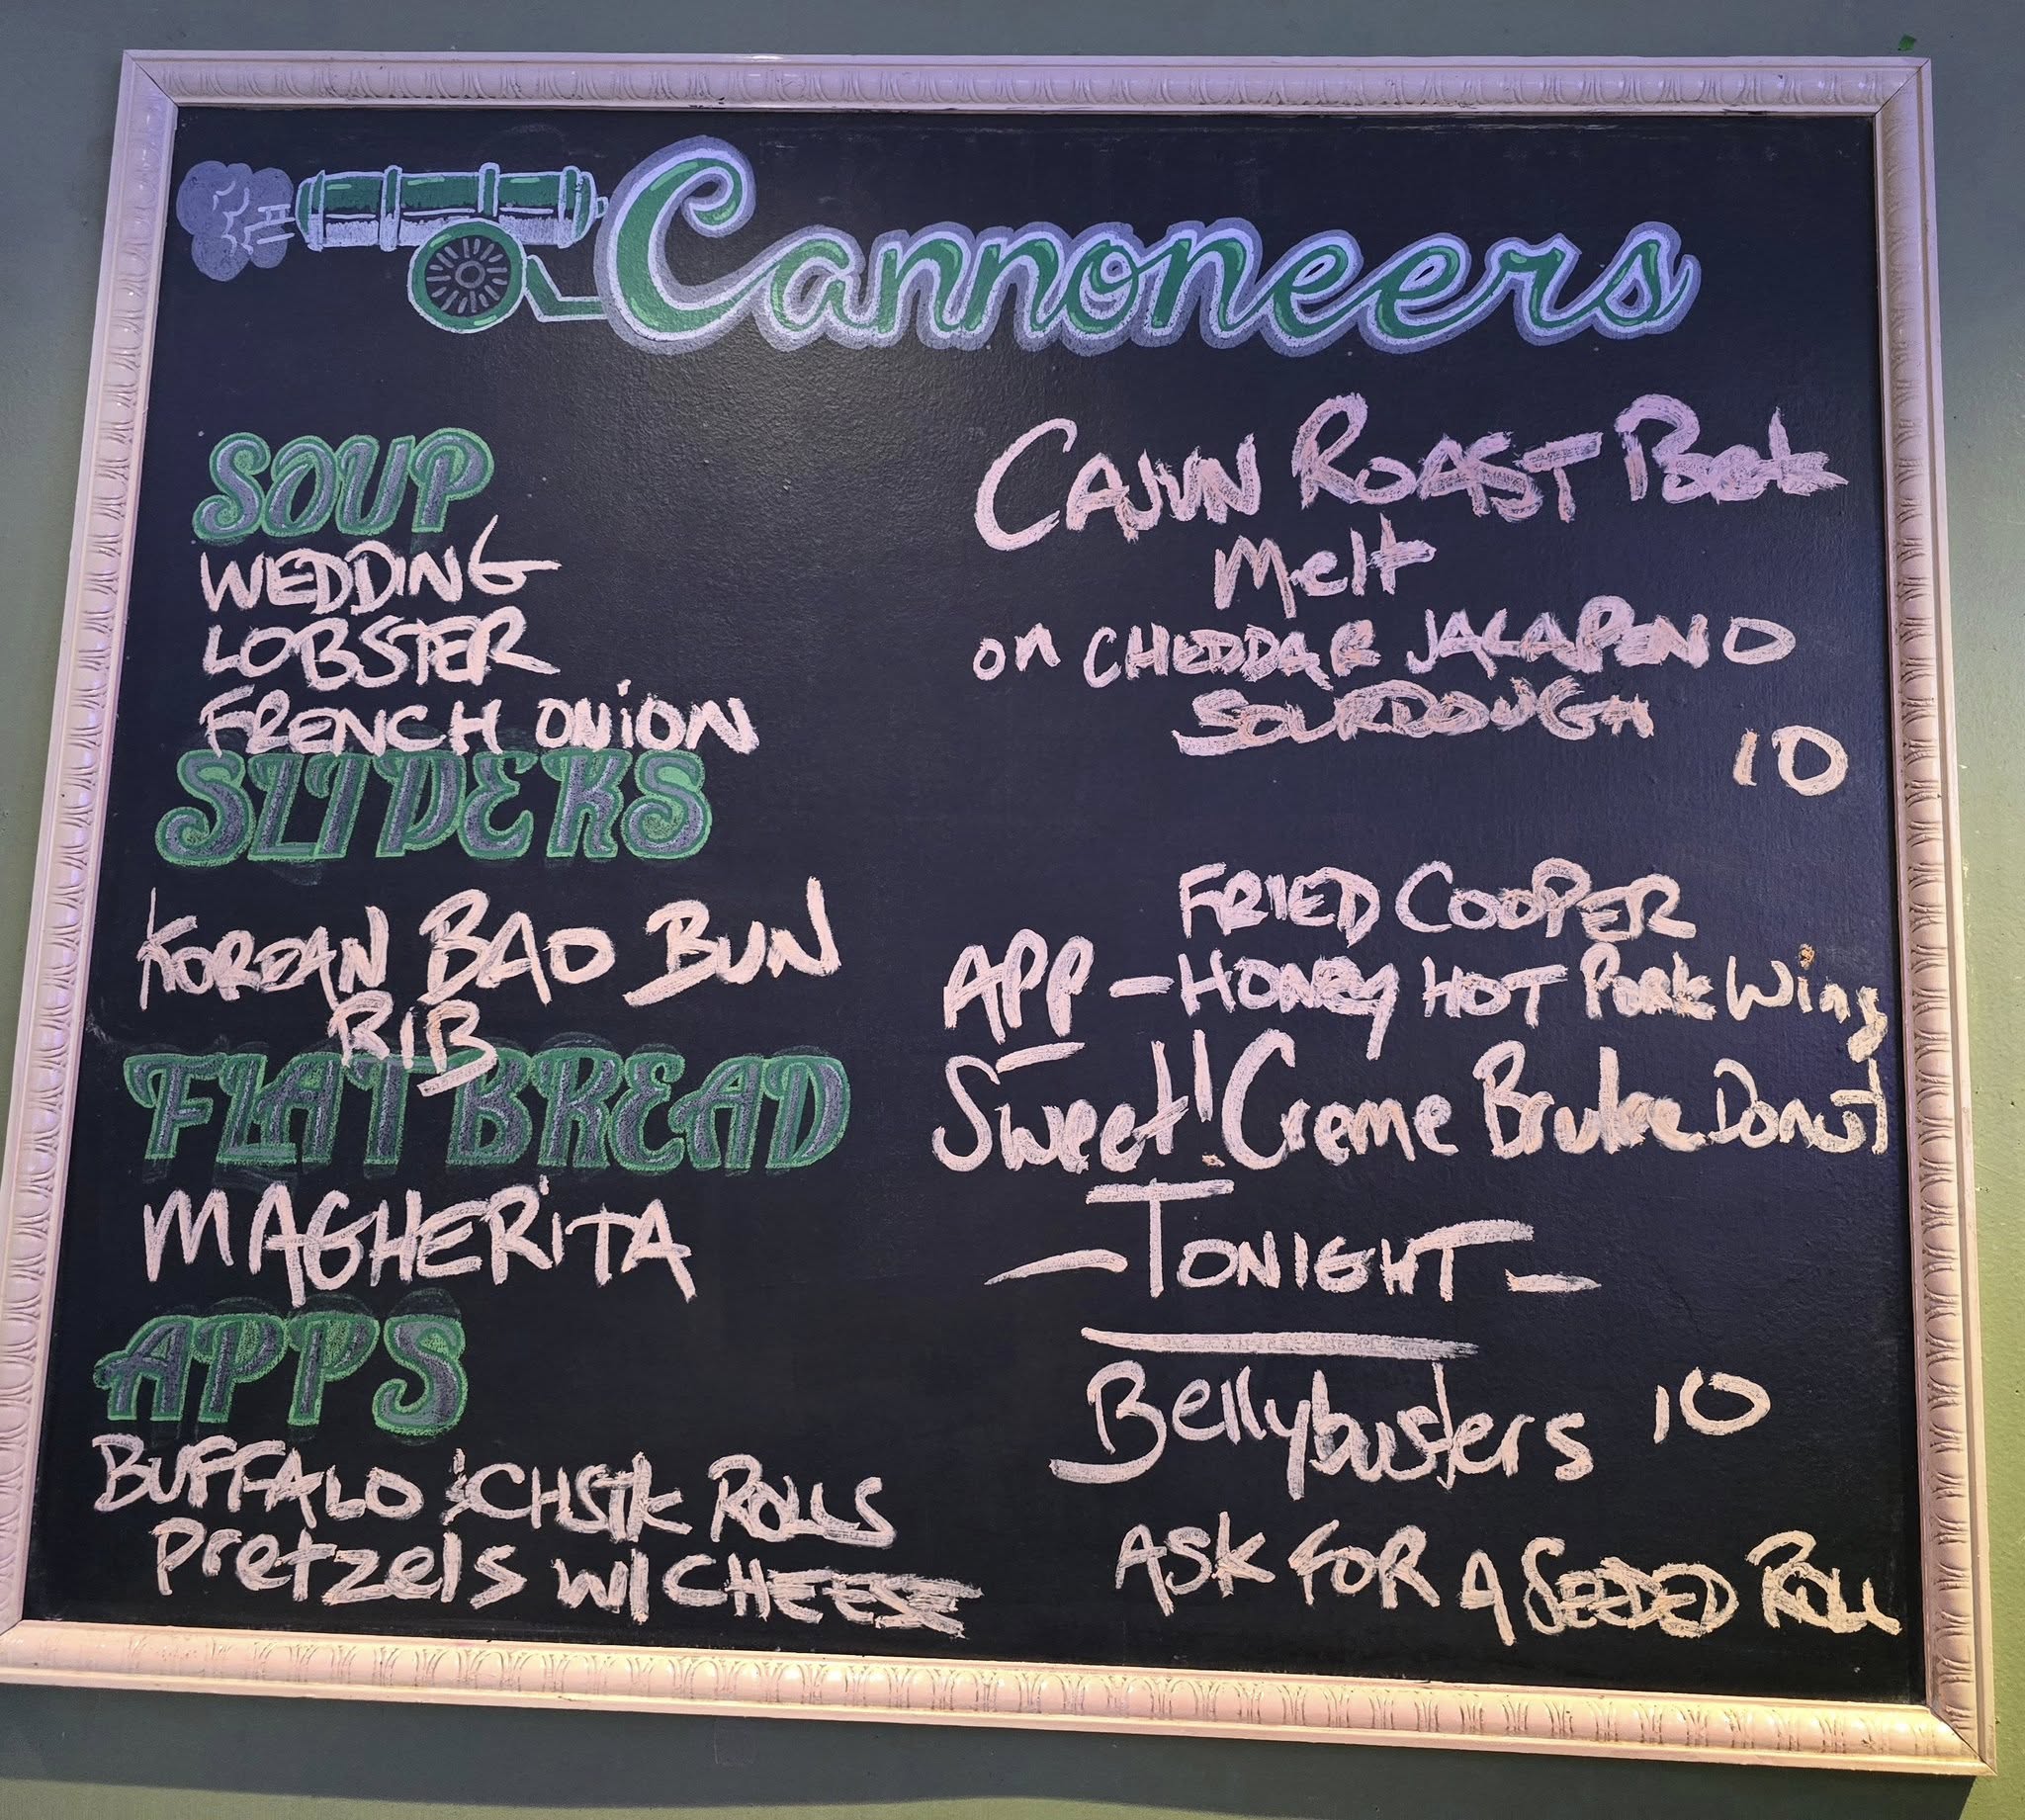 Cannoneers
SOUP
WEDDING
LOBSTER
FRENCH ONION
SLIDERS
KOREAN BAO BUN
RIB
FLATBREAD
MAGHERITA
APPS
BUFFALO CHSTK ROLLS
Pretzels W/CHEESE
CAJUN ROAST Beef
Melt
on CHEDDAR JALAPENO
SOURDOUGH
10
FRIED COOPER
APP - HONEY HOT PORK Wing
Sweet! Creme Brulee Donut
-TONIGHT-
Bellybusters 10
ASK FOR A SEEDED ROLL